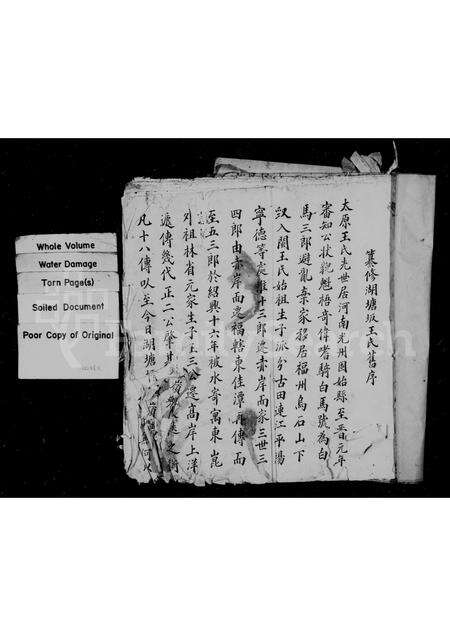 Whole Volume
Water Damage
Torn Page(s)
Soiled Document
Poor Copy of Original
纂修湖塘坂王氏舊序
太原王氏先世居河南光州固始縣至晉元年
審知公狀貌魁梧奇偉嗜騎白馬號為白
馬三郎避亂棄家移居福州烏石山下
入閩王氏始祖生子派分古田連江平陽
寧德等處惟十三郎遷赤岸而家三世三
四郎由赤岸而遷福轄東佳潭再傳而
至五三郎於紹興十六年被水寄寓東崑
外祖林省元家生子王三公遷高岸上洋
遞傳幾代正二公肇其
凡十八傳以至今日湖塘